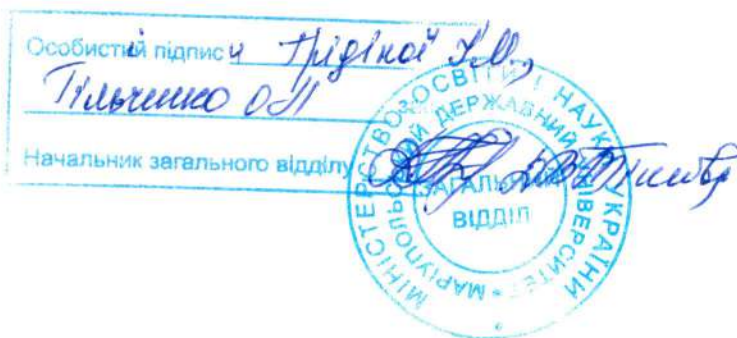 Особистий підпис и Грідіної
Пільченко О П
Начальник загального відділу
МІНІСТЕРСТВО ОСВІТИ І НАУКИ УКРАЇНИ
МАРІУПОЛЬСЬКИЙ ДЕРЖАВНИЙ УНІВЕРСИТЕТ
ЗАГАЛЬНИЙ
ВІДДІЛ